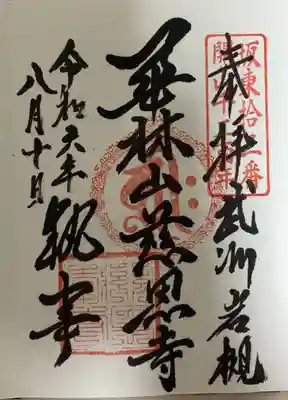 奉拝 武州岩槻
坂東拾二番
華林山慈恩寺
執事
令和六年
八月十日